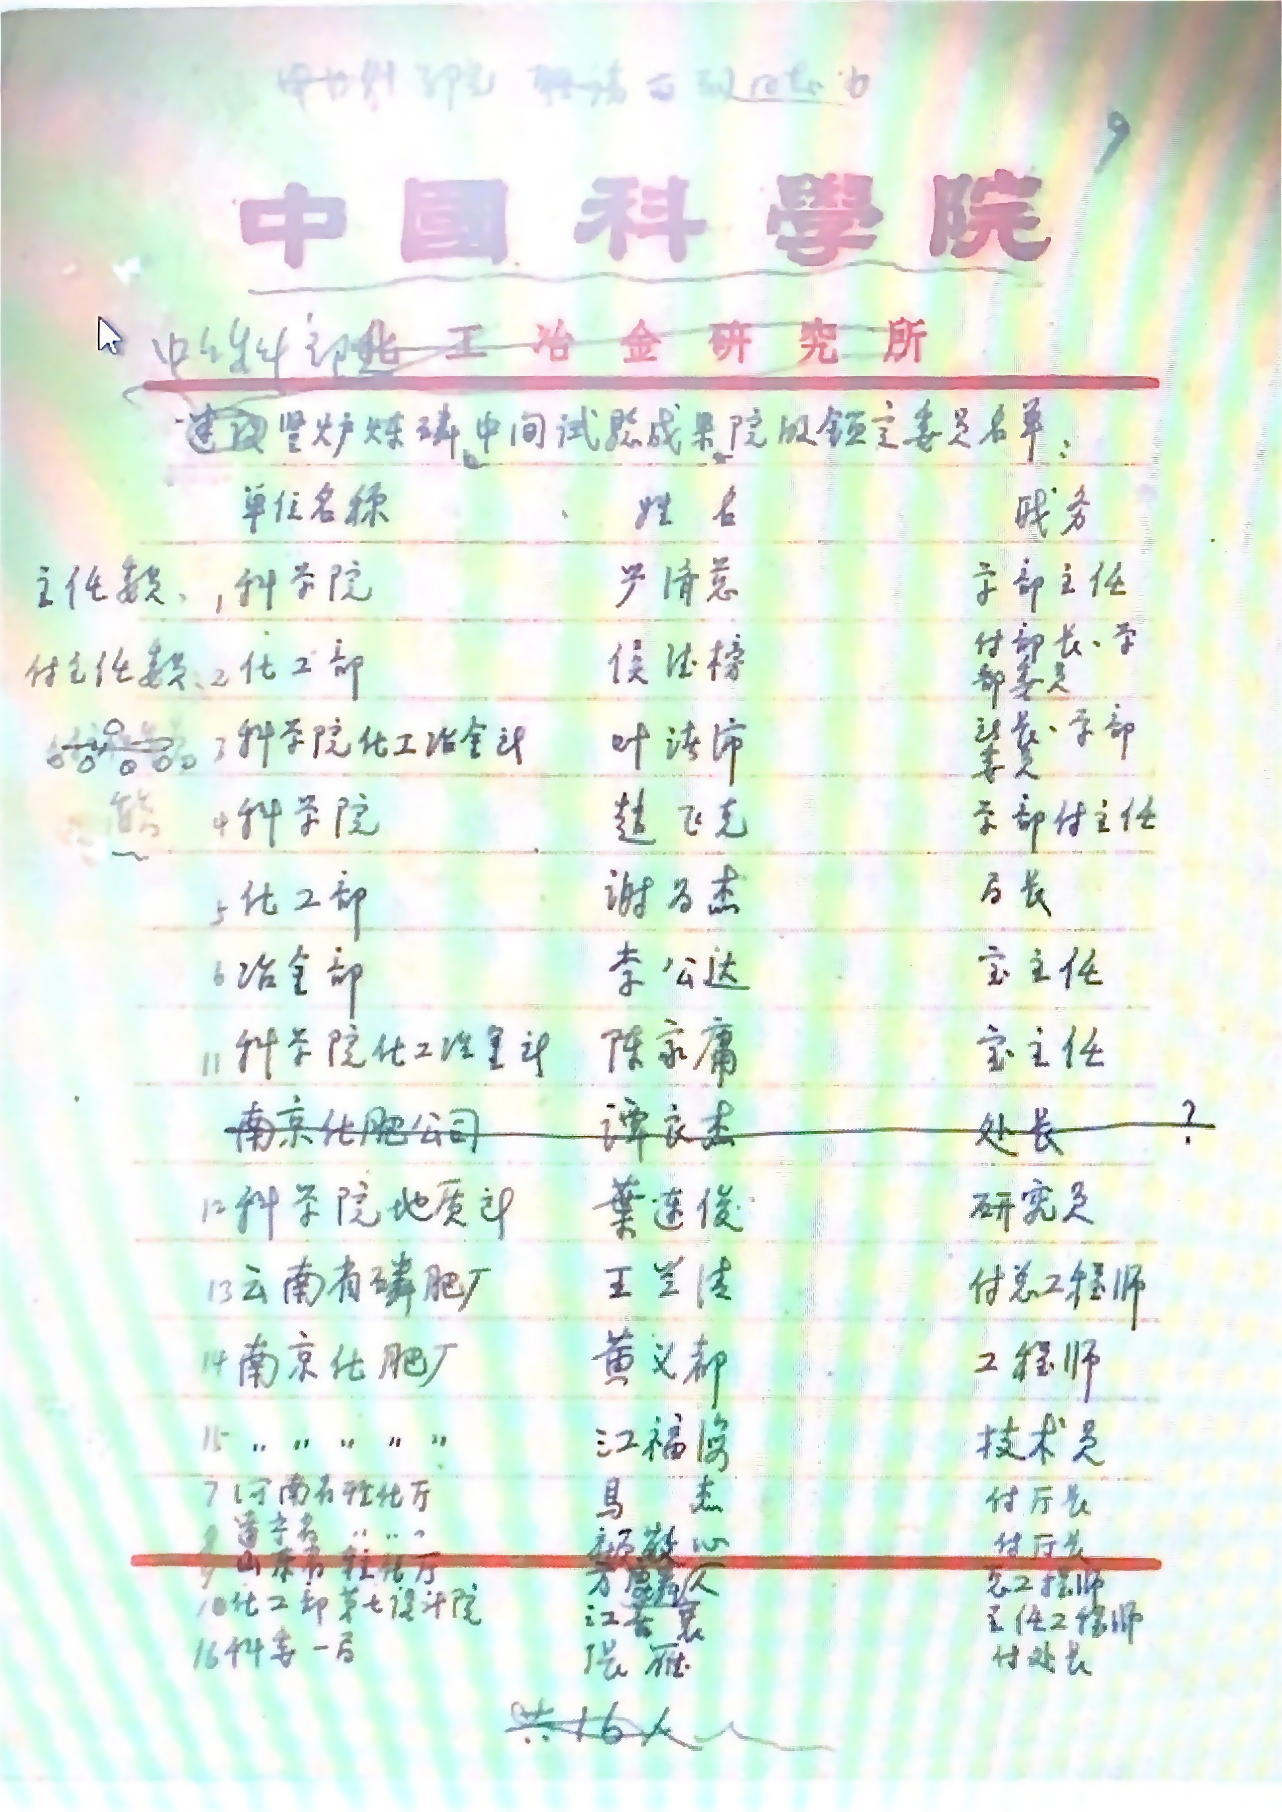 中國科學院
化工冶金研究所
建议竖炉炼磷中间试验成果院级鉴定委员名单：
单位名称 姓名 职务
主任委员、1 科学院 严济慈 学部主任
付主任委员、2 化工部 侯德榜 付部长、学部委员
3 科学院化工冶金所 叶渚沛 所长、学部委员
4 科学院 赵飞克 学部付主任
5 化工部 谢为杰 局长
6 冶金部 李公达 室主任
11 科学院化工冶金所 陈家庸 室主任
南京化肥公司 谭良杰 处长 ?
12 科学院地质所 葉连俊 研究员
13 云南省磷肥厂 王兰清 付总工程师
14 南京化肥厂 黄义都 工程师
15 〃 〃 〃 〃 〃 江福海 技术员
7 河南省轻化厅 马杰 付厅长
8 〃 〃 〃 心 付厅长
9 山东省轻化厅 总工程师
10 化工部第七设计院 江善襄 主任工程师
16 科委一局 张雁 付处长
共16人